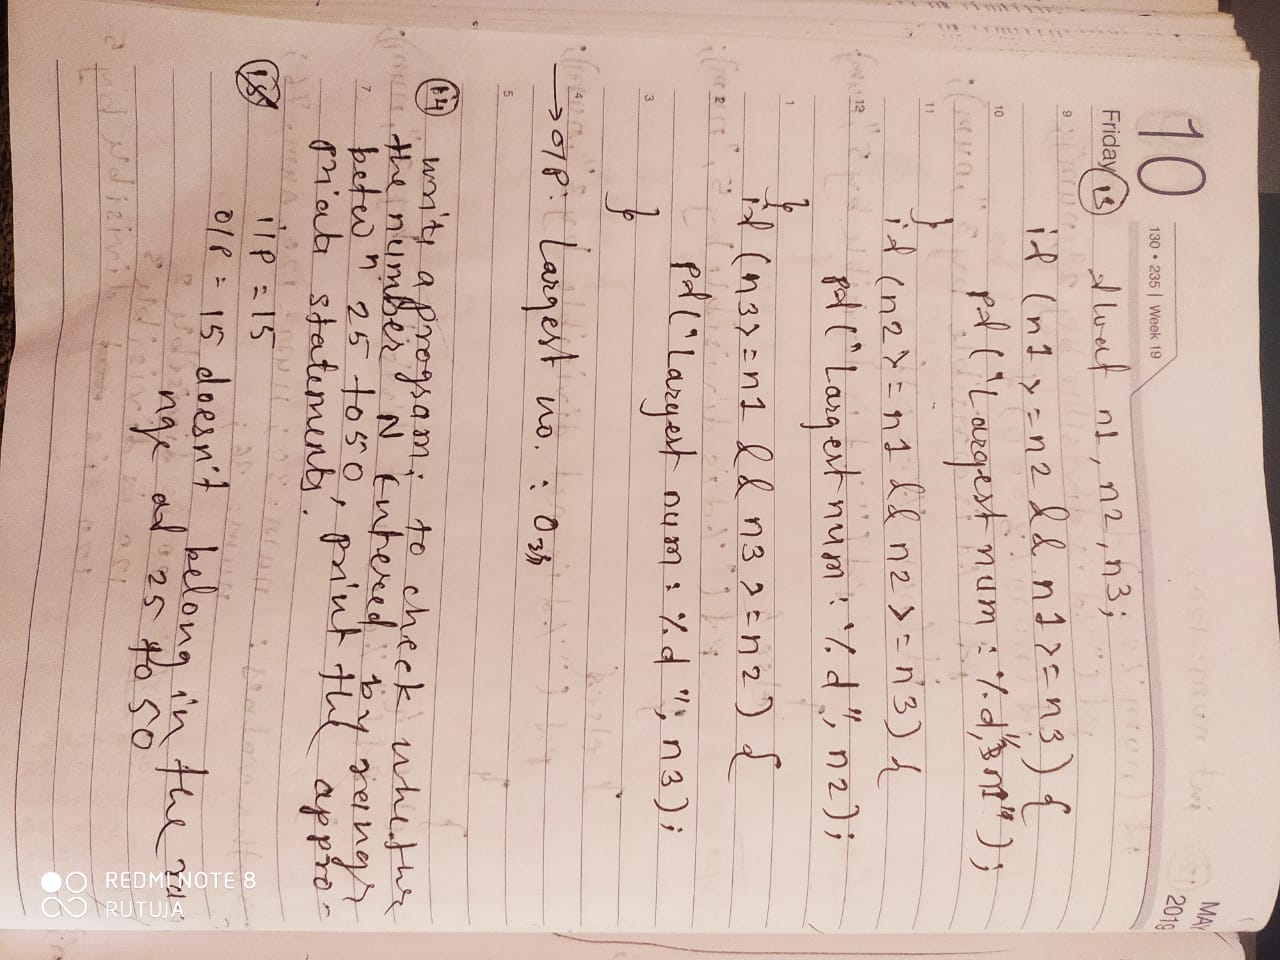 10
Friday
130 • 235 | Week 19
MAY
2019
13
float n1, n2, n3;
9
if (n1 >= n2 && n1 >= n3) {
10
pf ("Largest num : %d",
11
}
if (n2 >= n1 && n2 >= n3) {
12
pf ("Largest num : %d", n2);
1
}
if (n3 >= n1 && n3 >= n2) {
2
pf ("Largest num : %d", n3);
3
}
4
→ O/P : Largest no. :
5
14
write a program, to check whether
the number N entered
7
betwn 25 to 50, print the appro-
priate statements.
15
i/P = 15
O/P = 15 doesn't belong in the ra
nge of 25 to 50
REDMI NOTE 8
RUTUJA